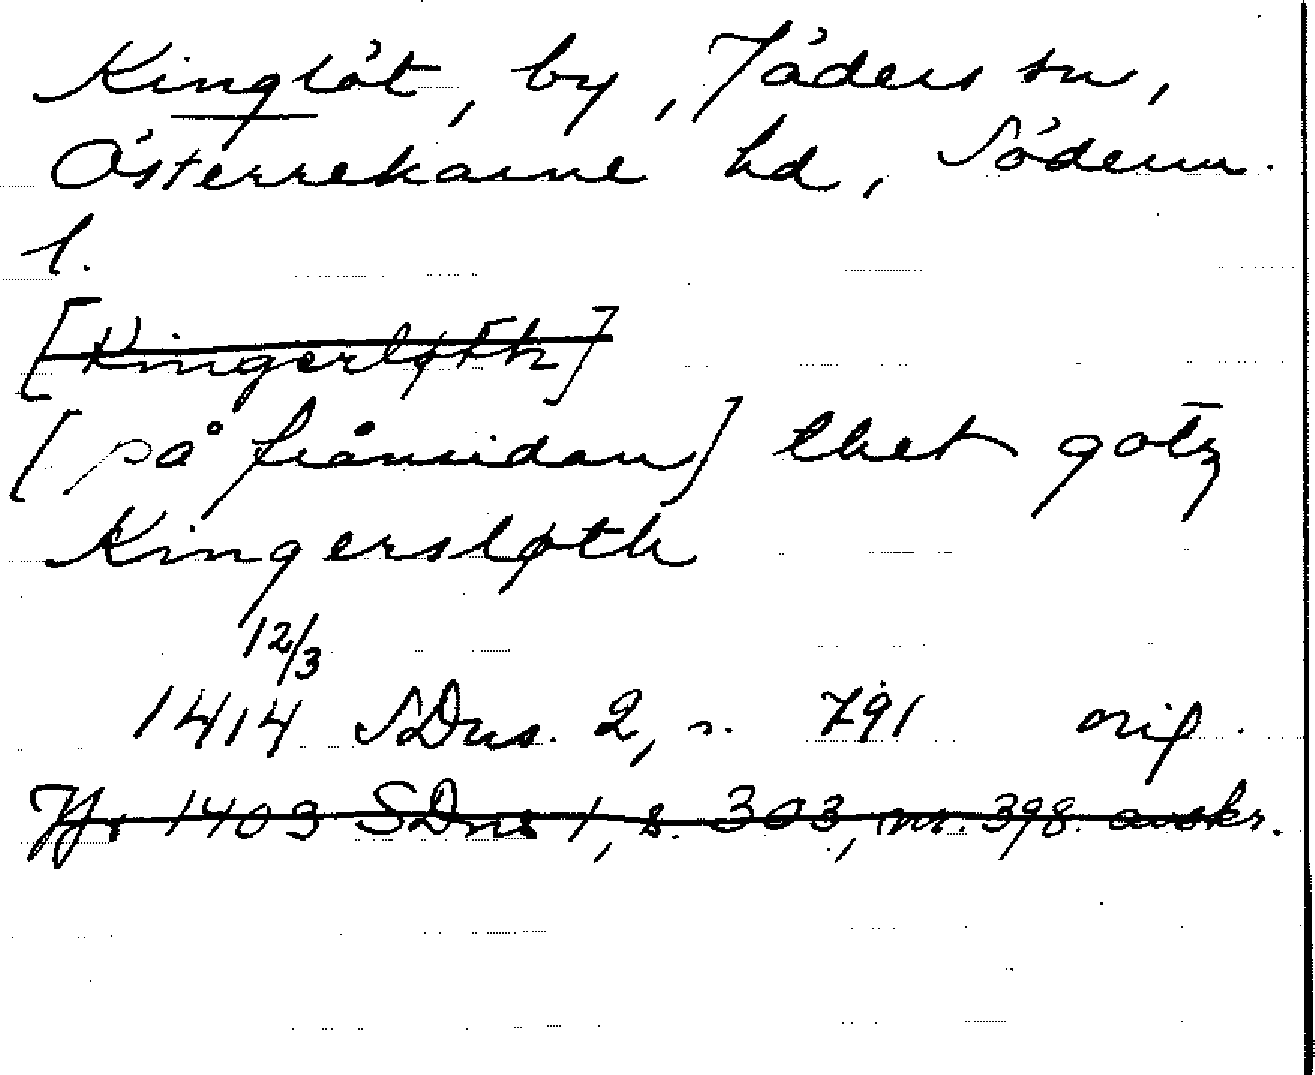 Kinglöt, by, Jäders sn,
Österrekarne hd, Söderm.
l.
[Kingerløth]
[på frånsidan] thet gotz
Kingersløth
12/3
1414 SDns. 2, s. 791 orig.
Jfr 1403 SDns 1, s. 303, nr. 398. avskr.